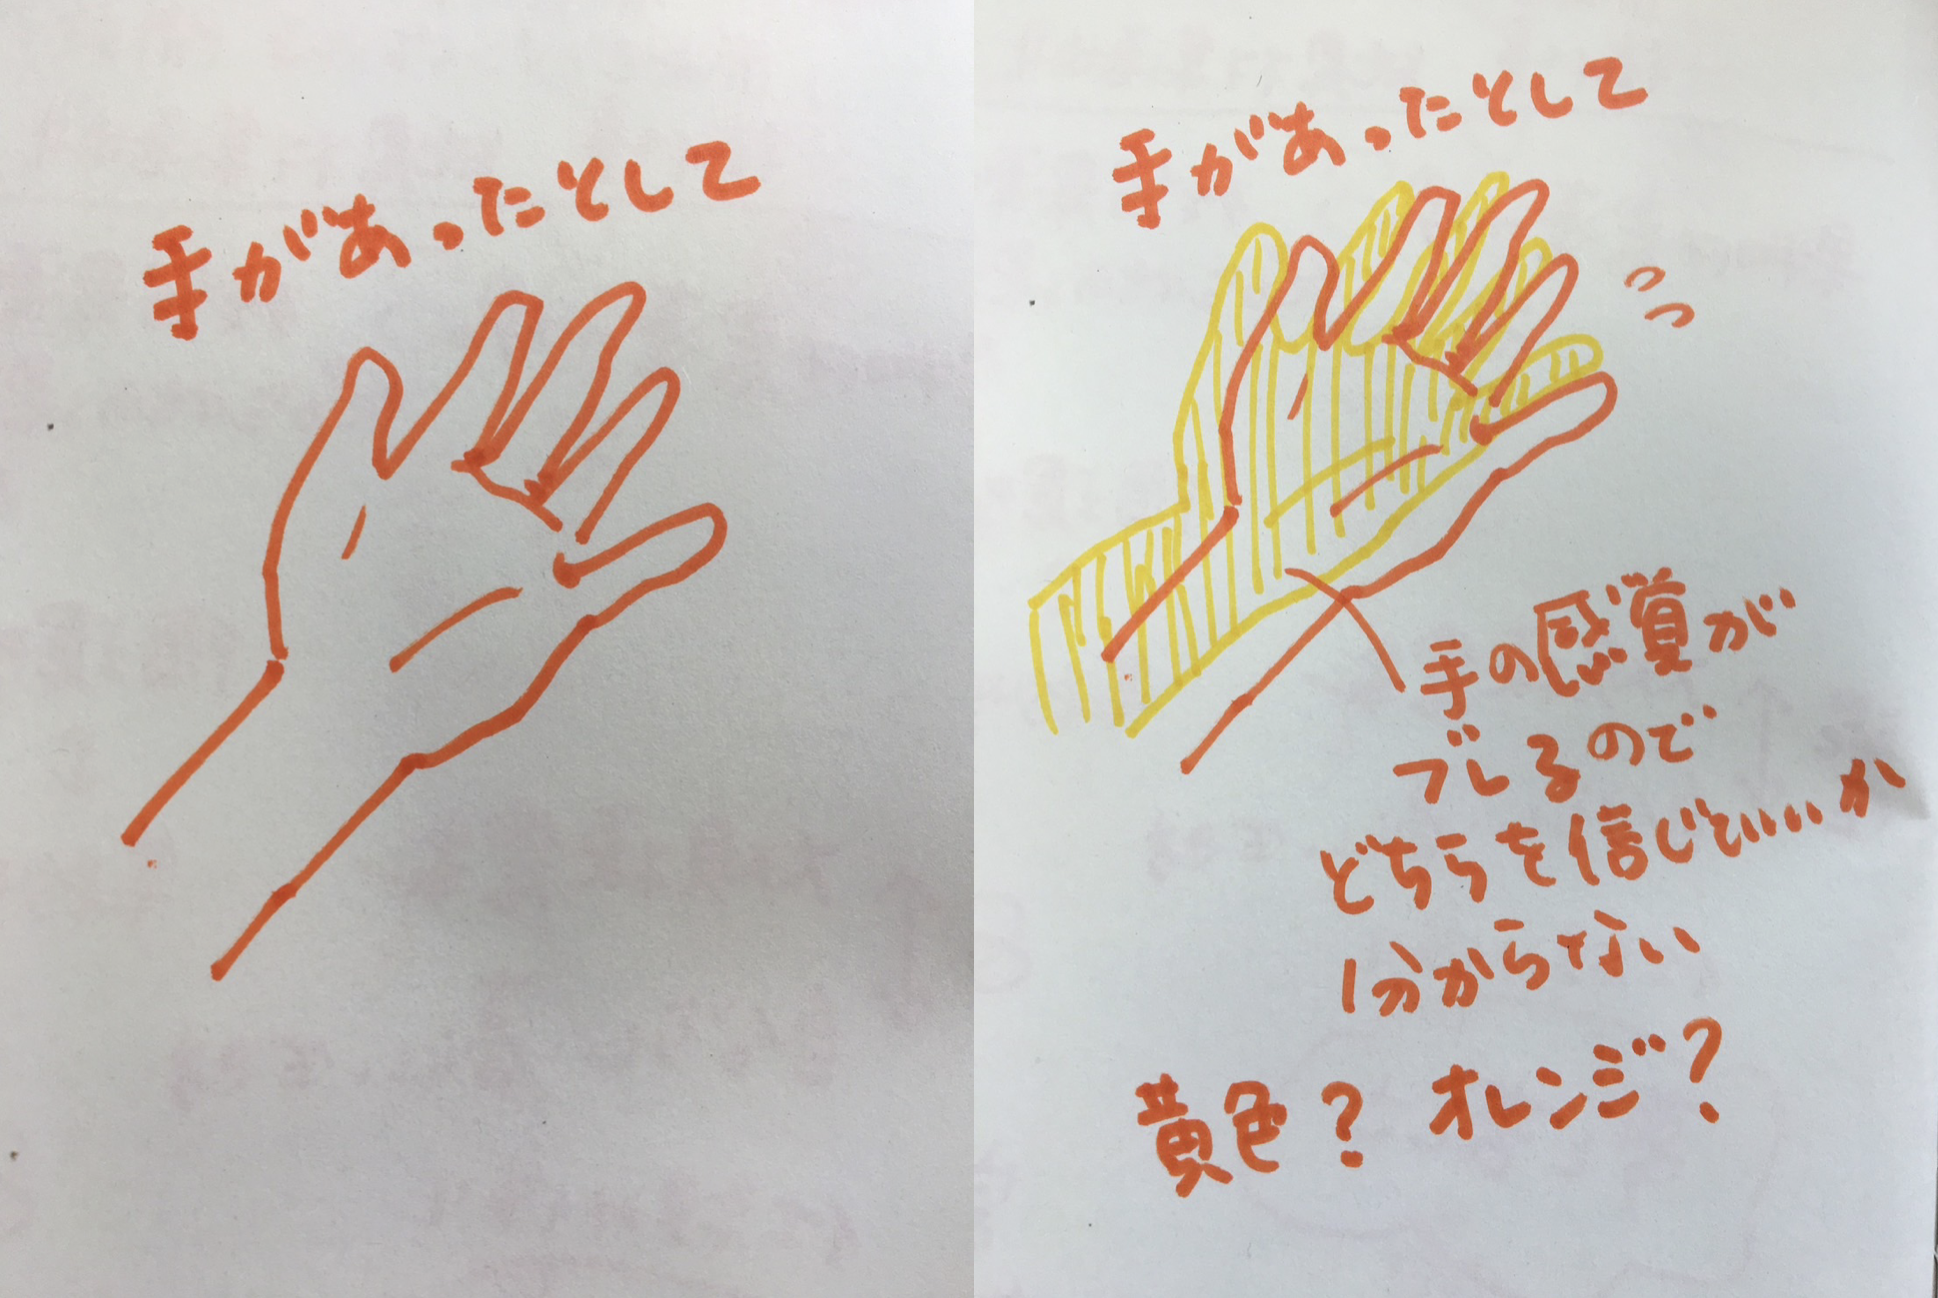 手があったとして
手があったとして
手の感覚が
ブレるので
どちらを信じていいか
分からない
黄色？オレンジ？